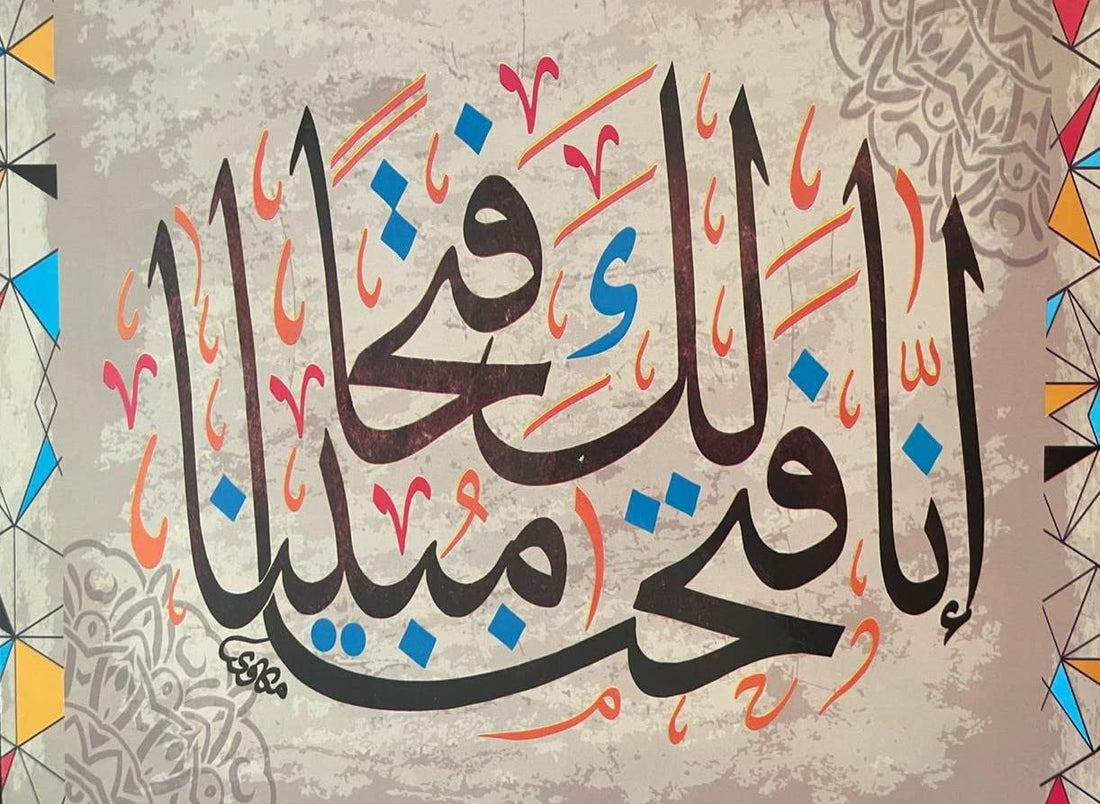 إنّا فتحنا لك فتحًا مُبينا